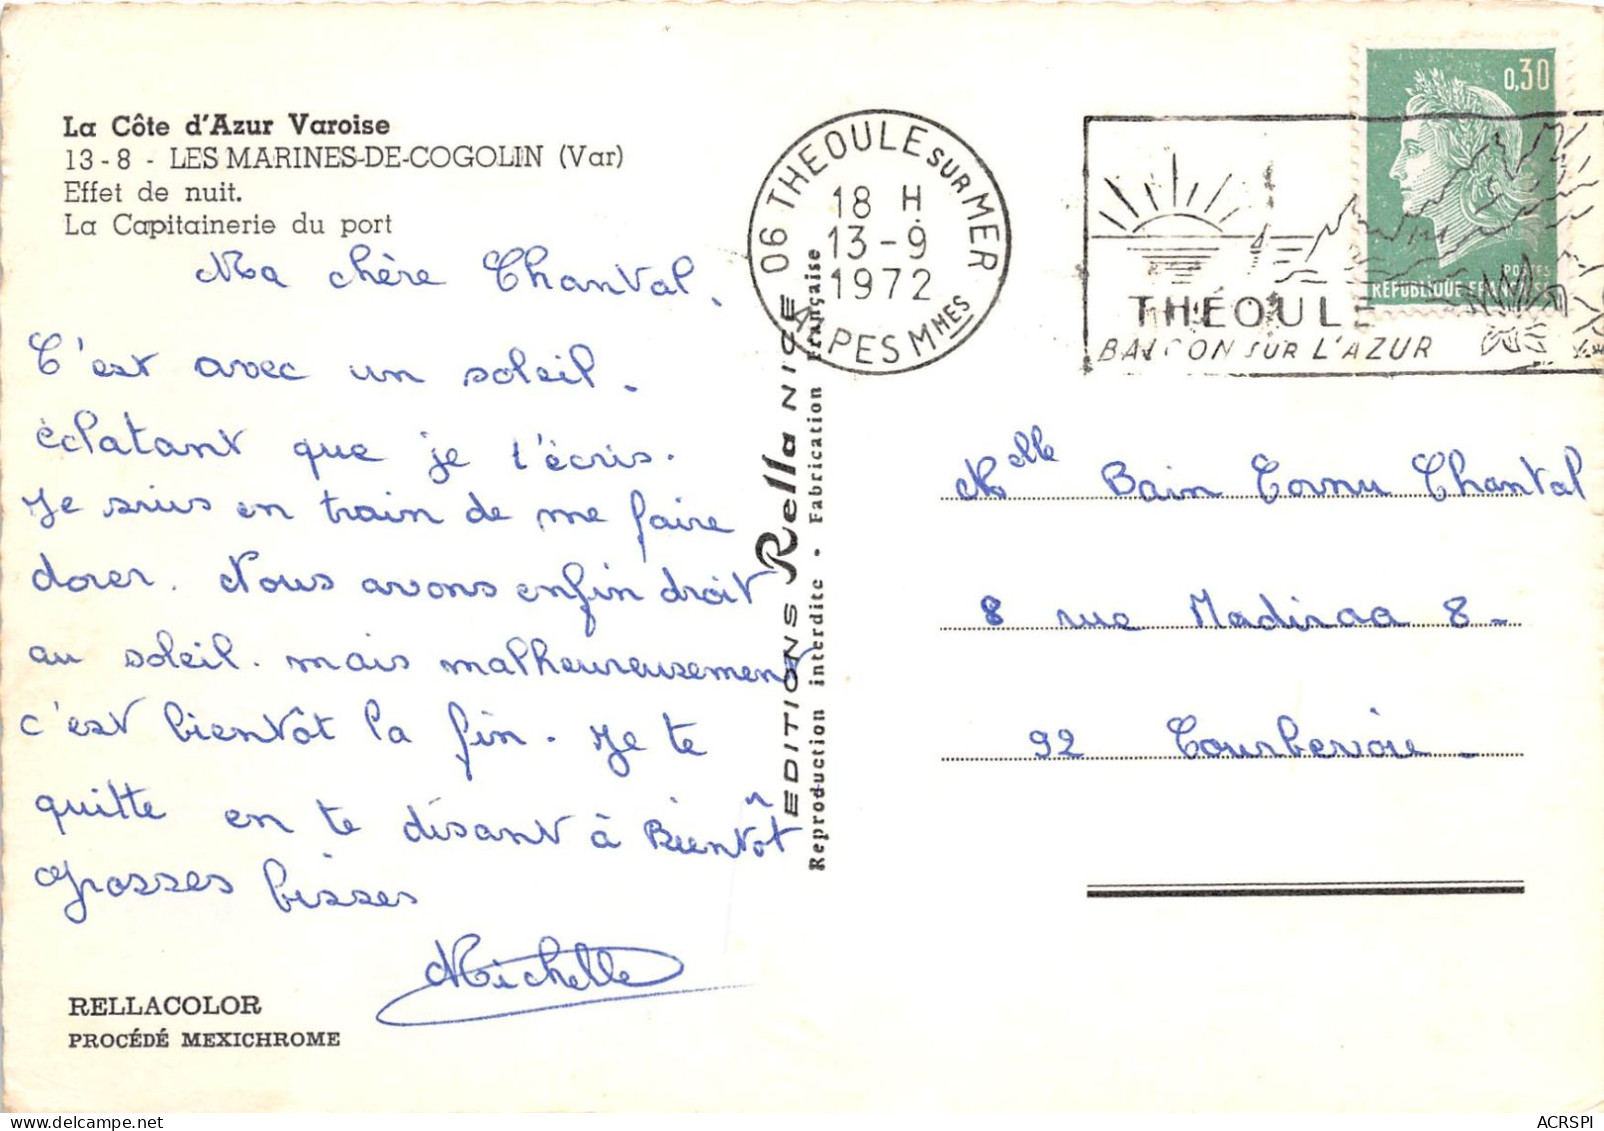 La Côte d'Azur Varoise
13-8 - LES MARINES-DE-COGOLIN (Var)
Effet de nuit.
La Capitainerie du port
Ma chère Chantal.
C'est avec un soleil.
éclatant que je t'écris.
Je suis en train de me faire
dorer. Nous avons enfin droit
au soleil. mais malheureusement
c'est bientôt la fin. Je te
quitte en te disant à Bientôt
Grosses bisses
Michelle
RELLACOLOR
PROCÉDÉ MEXICHROME
EDITIONS Rella NICE
Reproduction interdite • Fabrication Française
06 THEOULE SUR MER
18 H
13-9
1972
ALPES MMES
THÉOUL
BALCON SUR L'AZUR
0,30
POSTES
REPUBLIQUE
Melle Bain Cornu Chantal
8 rue 8-
92 Courbevoie -
ACRSPI